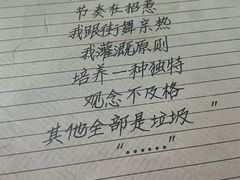 节奏在招惹
我跟街舞亲热
我灌溉原则
培养一种独特
观念不及格
其他全部是垃圾”
“……”